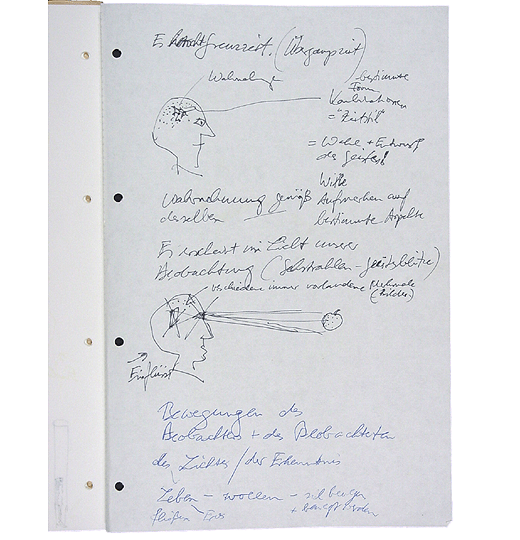 Es herrscht Grenzzeit. (Übergangszeit)
Wahrnehmung
bestimmte
Form
Kombinationen
= "Zeitstil"
= Wahl + Entwurf
des Geistes!
Wahrnehmung gemäß
derselben
Wille
Aufmerken auf
bestimmte Aspekte
Es erscheint im Licht unserer
Beobachtung (Sehstrahlen - Geistesblitze)
verschiedene immer vorhandene Merkmale
(Bilder)
Einflüsse
Bewegungen des
Beobachters + des Beobachteten
des Lichtes / der Erkenntnis
Leben - wollen -
fließen